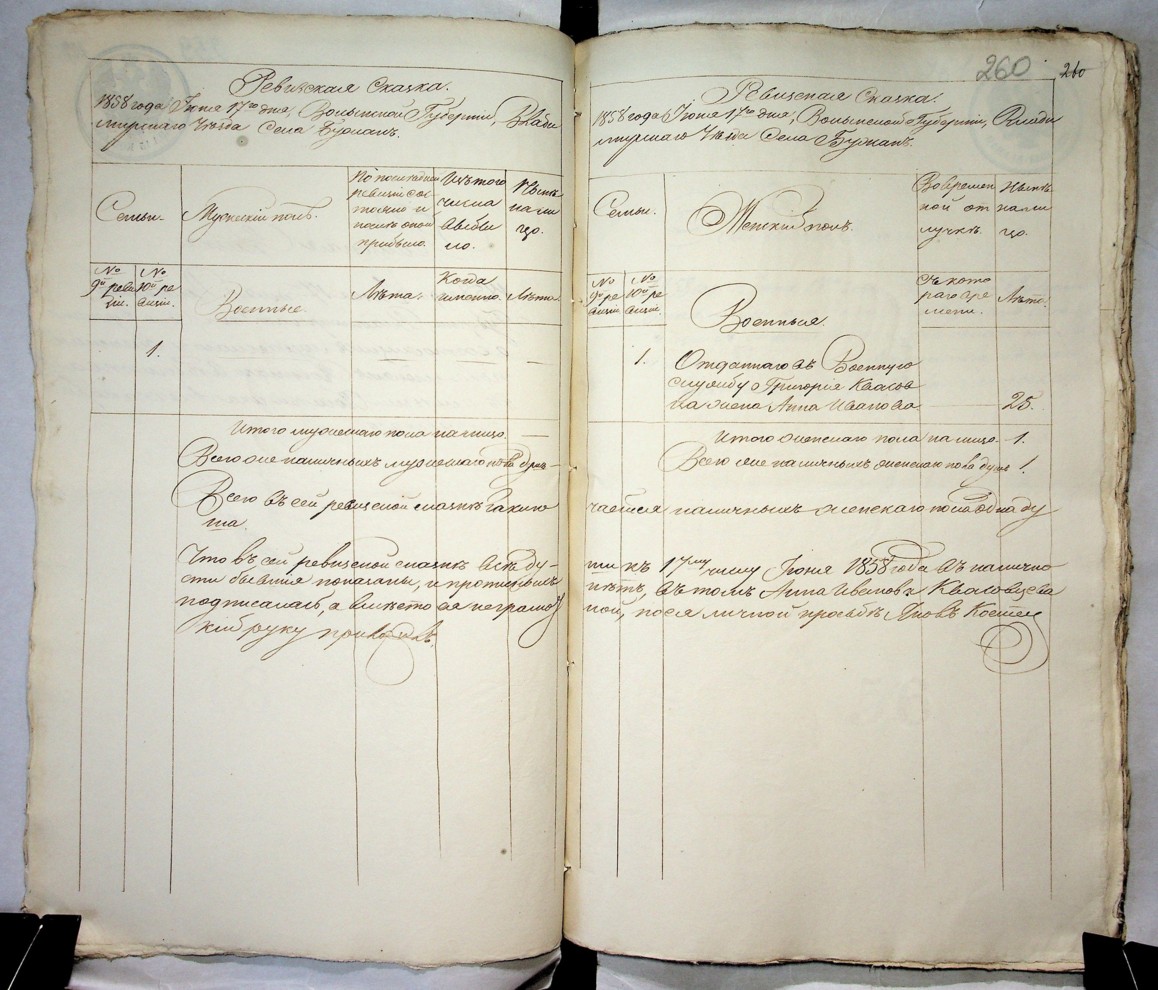 Ревизская Сказка.
1858 года Июня 17го дня, Волынской Губерніи, Влади
мирскаго Уѣзда Села Бужанъ.
Семьи.
Мужескій полъ.
По последней
ревизіи сос
тояло и
послѣ оной
прибыло.
Изъ того
числа
выбы
ло.
Нынѣ
на ли
цо.
№
9й реви
зіи.
№
10й ре
визіи.
Военные.
Лѣта.
Когда
именно.
Лѣта.
1.
Итого мужескаго пола на лицо.
Всего же наличныхъ мужескаго пола душъ
Всего въ сей ревизской сказкѣ
ша.
Что въ сей ревизской сказкѣ всѣ ду-
ши бывшія показаны, и
подписалась, а вмѣсто ея неграмот
руку приложилъ.
260
260
Ревизская Сказка.
1858 года Июня 17го дня, Волынской Губерніи, Влади
мирскаго Уѣзда Села Бужанъ.
Семьи.
Женскій полъ.
Во времен
ной от
лучкѣ.
Нынѣ
на ли
цо.
№
9й ре
визіи.
№
10й ре
визіи.
Военныя.
Съ кото
раго вре
мени.
Лѣта.
1.
Отданнаго въ Военную
службу Григорія Квасов
ца жена Анна Иванова
25.
Итого женскаго пола на лицо 1.
Всего же наличныхъ женскаго пола душъ 1.
чается наличныхъ женскаго пола одна ду
ши къ 17му числу Июня 1858 года въ налично
въ томъ Анна Иванова
ной, после личной просьбѣ Яковъ